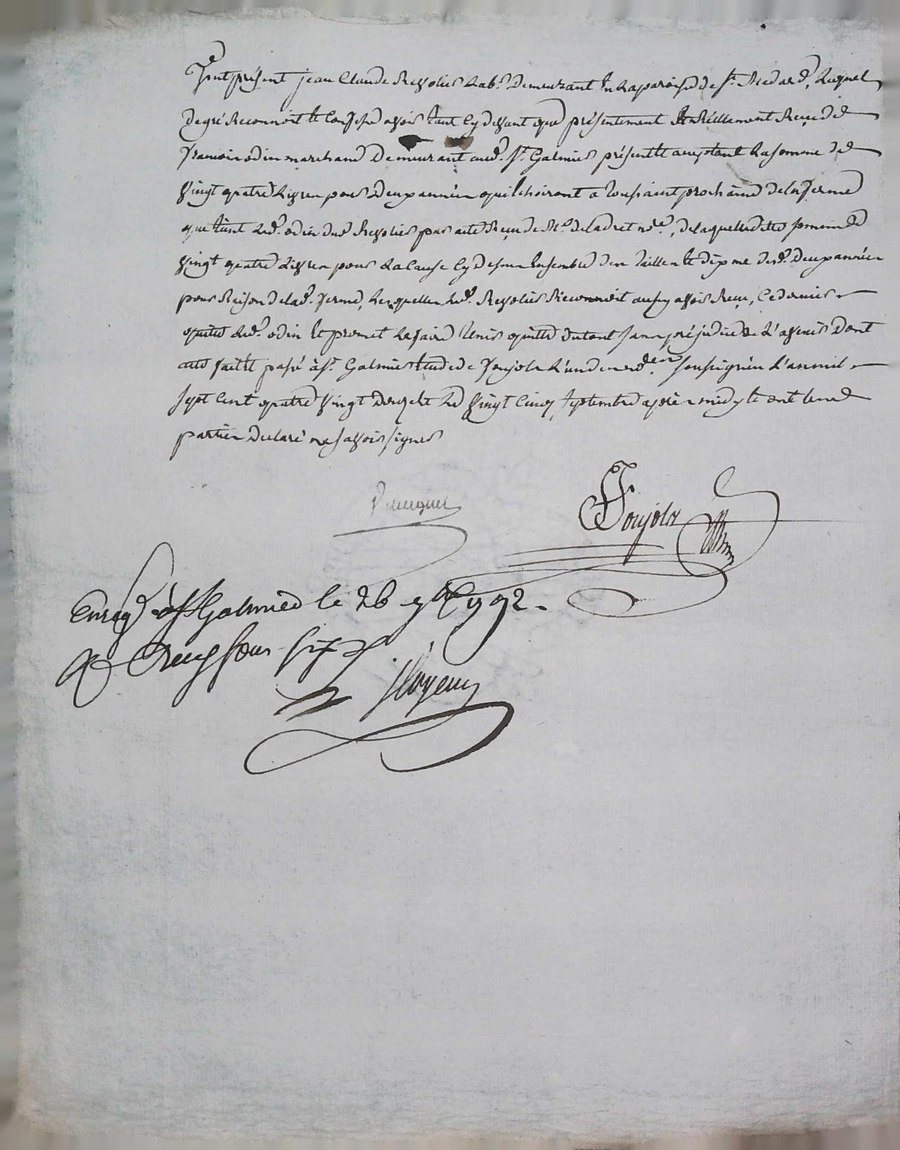 fut présent jean Claude Revolier lab.r Demeurant En la paroisse de St. Medard, Lequel
De gré Reconnoit et Confesse avoir tant Cy devant que présentement Et Réellement Reçu de
francois odin marchand Demeurant aud. St. Galmier présent et acceptant La somme de
vingt quatre Livres pour Deux années qui Echoiront a toussaint prochaine de la ferme
que tient led. odin dud. Revolier par acte Reçu de Me. no.re, de laquelle dite somme de
vingt quatre Livres pour La Cause Cy dessus Ensemble des tailles et dixme desd. Deux années
pour Raison de lad. ferme, Lesquelles led. Revolier Reconnoit aussy avoir Reçu, Ce dernier
quitte led. odin et promet Le faire tenir quitte Envers tous sans préjudice de L'avenir Dont
acte fait et passé à St. Galmier Etude de fonjols L'un des no.res soussignés L'an mil
sept Cent quatre vingt Douze et Le vingt Cinq septembre après midy et ont les
parties Declaré ne savoir signer
fonjols
Enreg. à St Galmier le 26 7bre 1792.
R Reçu sous six